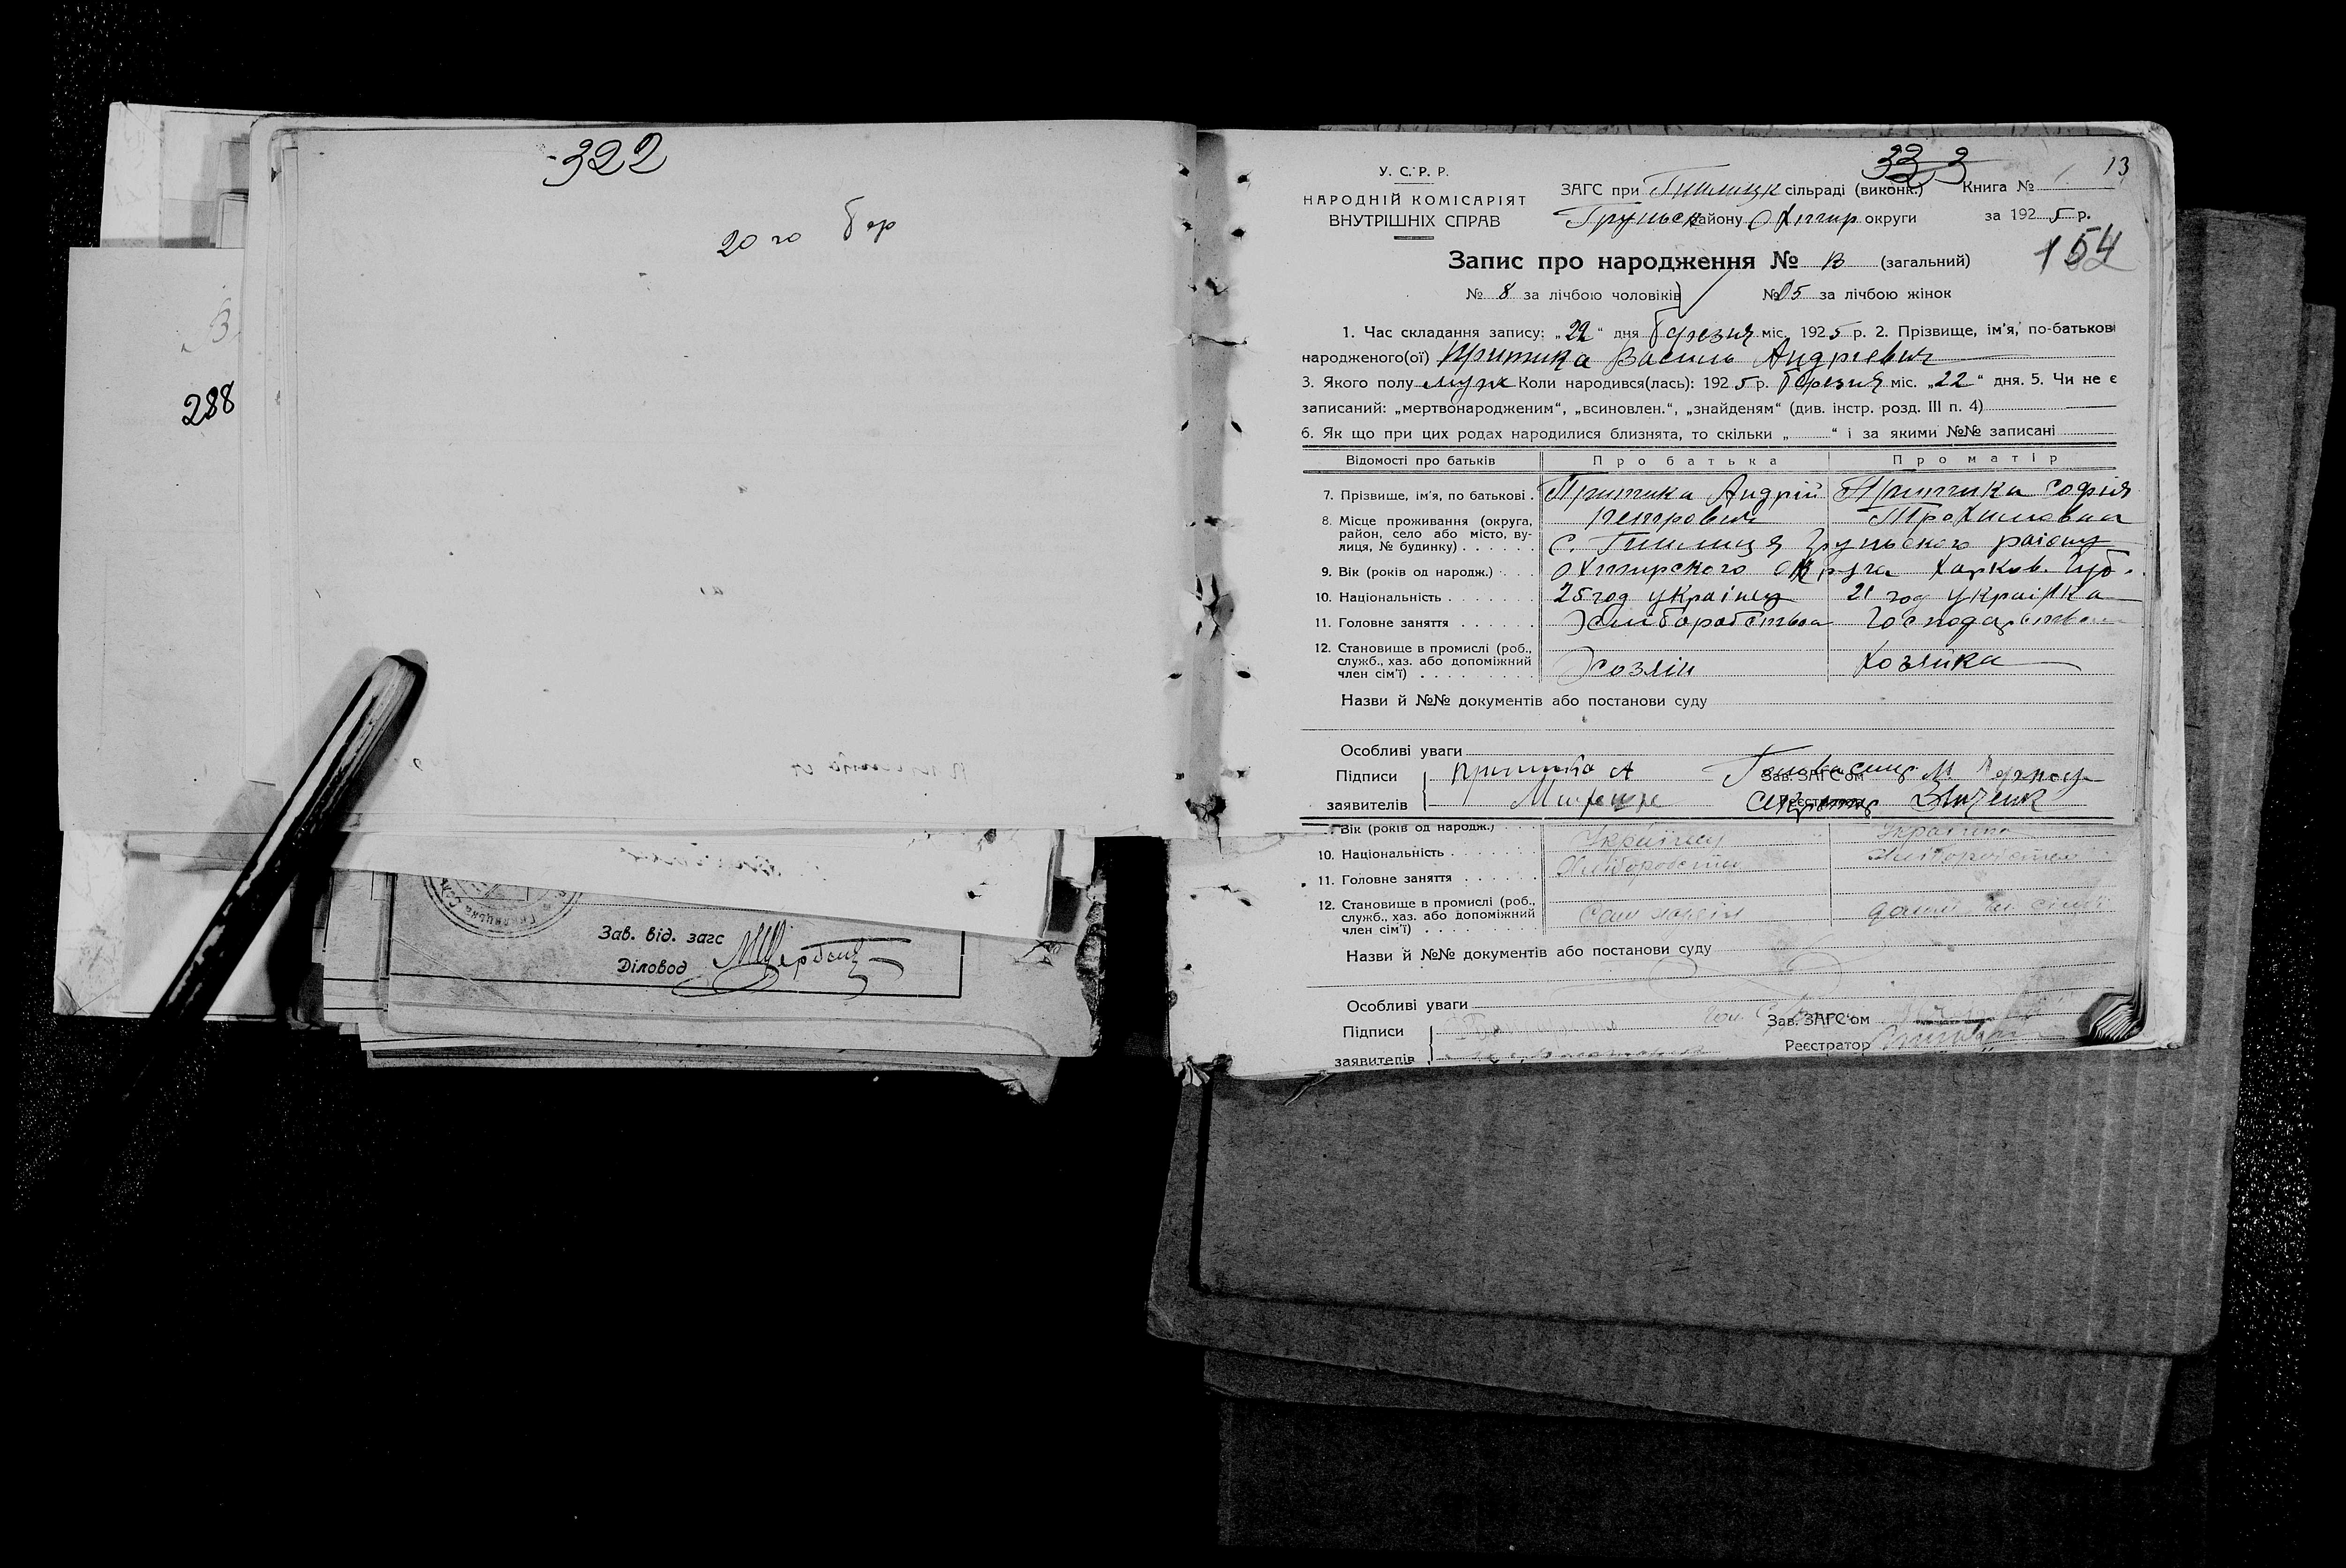 322
20 го бер
288
У. С. Р. Р.
НАРОДНІЙ КОМІСАРІЯТ
ВНУТРІШНІХ СПРАВ
ЗАГС при сільраді (виконк.) Книга № 13
Грунськ району Охтир округи за 1925 р.
154
Запис про народження № 13 (загальний)
№ 8 за лічбою чоловіків № 5 за лічбою жінок
1. Час складання запису: „22“ дня березня міс. 1925 р. 2. Прізвище, ім'я, по-батькові
народженого(ої) Притика Василь Андрієвич
3. Якого полу муж Коли народився(лась): 1925 р. березня міс. „22“ дня. 5. Чи не є
записаний: „мертвонародженим“, „всиновлен.“, „знайденям“ (див. інстр. розд. III п. 4)
6. Як що при цих родах народилися близнята, то скільки „ “ і за якими №№ записані
Відомості про батьків Про батька Про матір
7. Прізвище, ім'я, по батькові . Притика Андрій Притика Софія
Петрович Трохимовна
8. Місце проживання (округа,
район, село або місто, ву-
лиця, № будинку) . . . . . . с. Грунського району
9. Вік (років од народж.) . . . Охтирского Округа Харков. Губ.
10. Національність . . . . . . . 25 год українец 21 год українка
11. Головне заняття . . . . . . Хлиборобство Господарство
12. Становище в промислі (роб.,
служб., хаз. або допоміжний
член сім'ї) . . . . . . . . . Хозяін Хозяйка
Назви й №№ документів або постанови суду
Особливі уваги
Підписи Притика А Зав. ЗАГС'ом М.
заявителів Реєстратор Секретар
Вік (років од народж.) . . .
10. Національність . . . . . . Українец Українка
11. Головне заняття . . . . . . Хлиборобство Хлиборобство
12. Становище в промислі (роб.,
служб., хаз. або допоміжний
член сім'ї) . . . . . . . . Сам
Назви й №№ документів або постанови суду
Особливі уваги
Підписи Зав. ЗАГС'ом
Реєстратор
заявителів
Зав. від. загс
Діловод